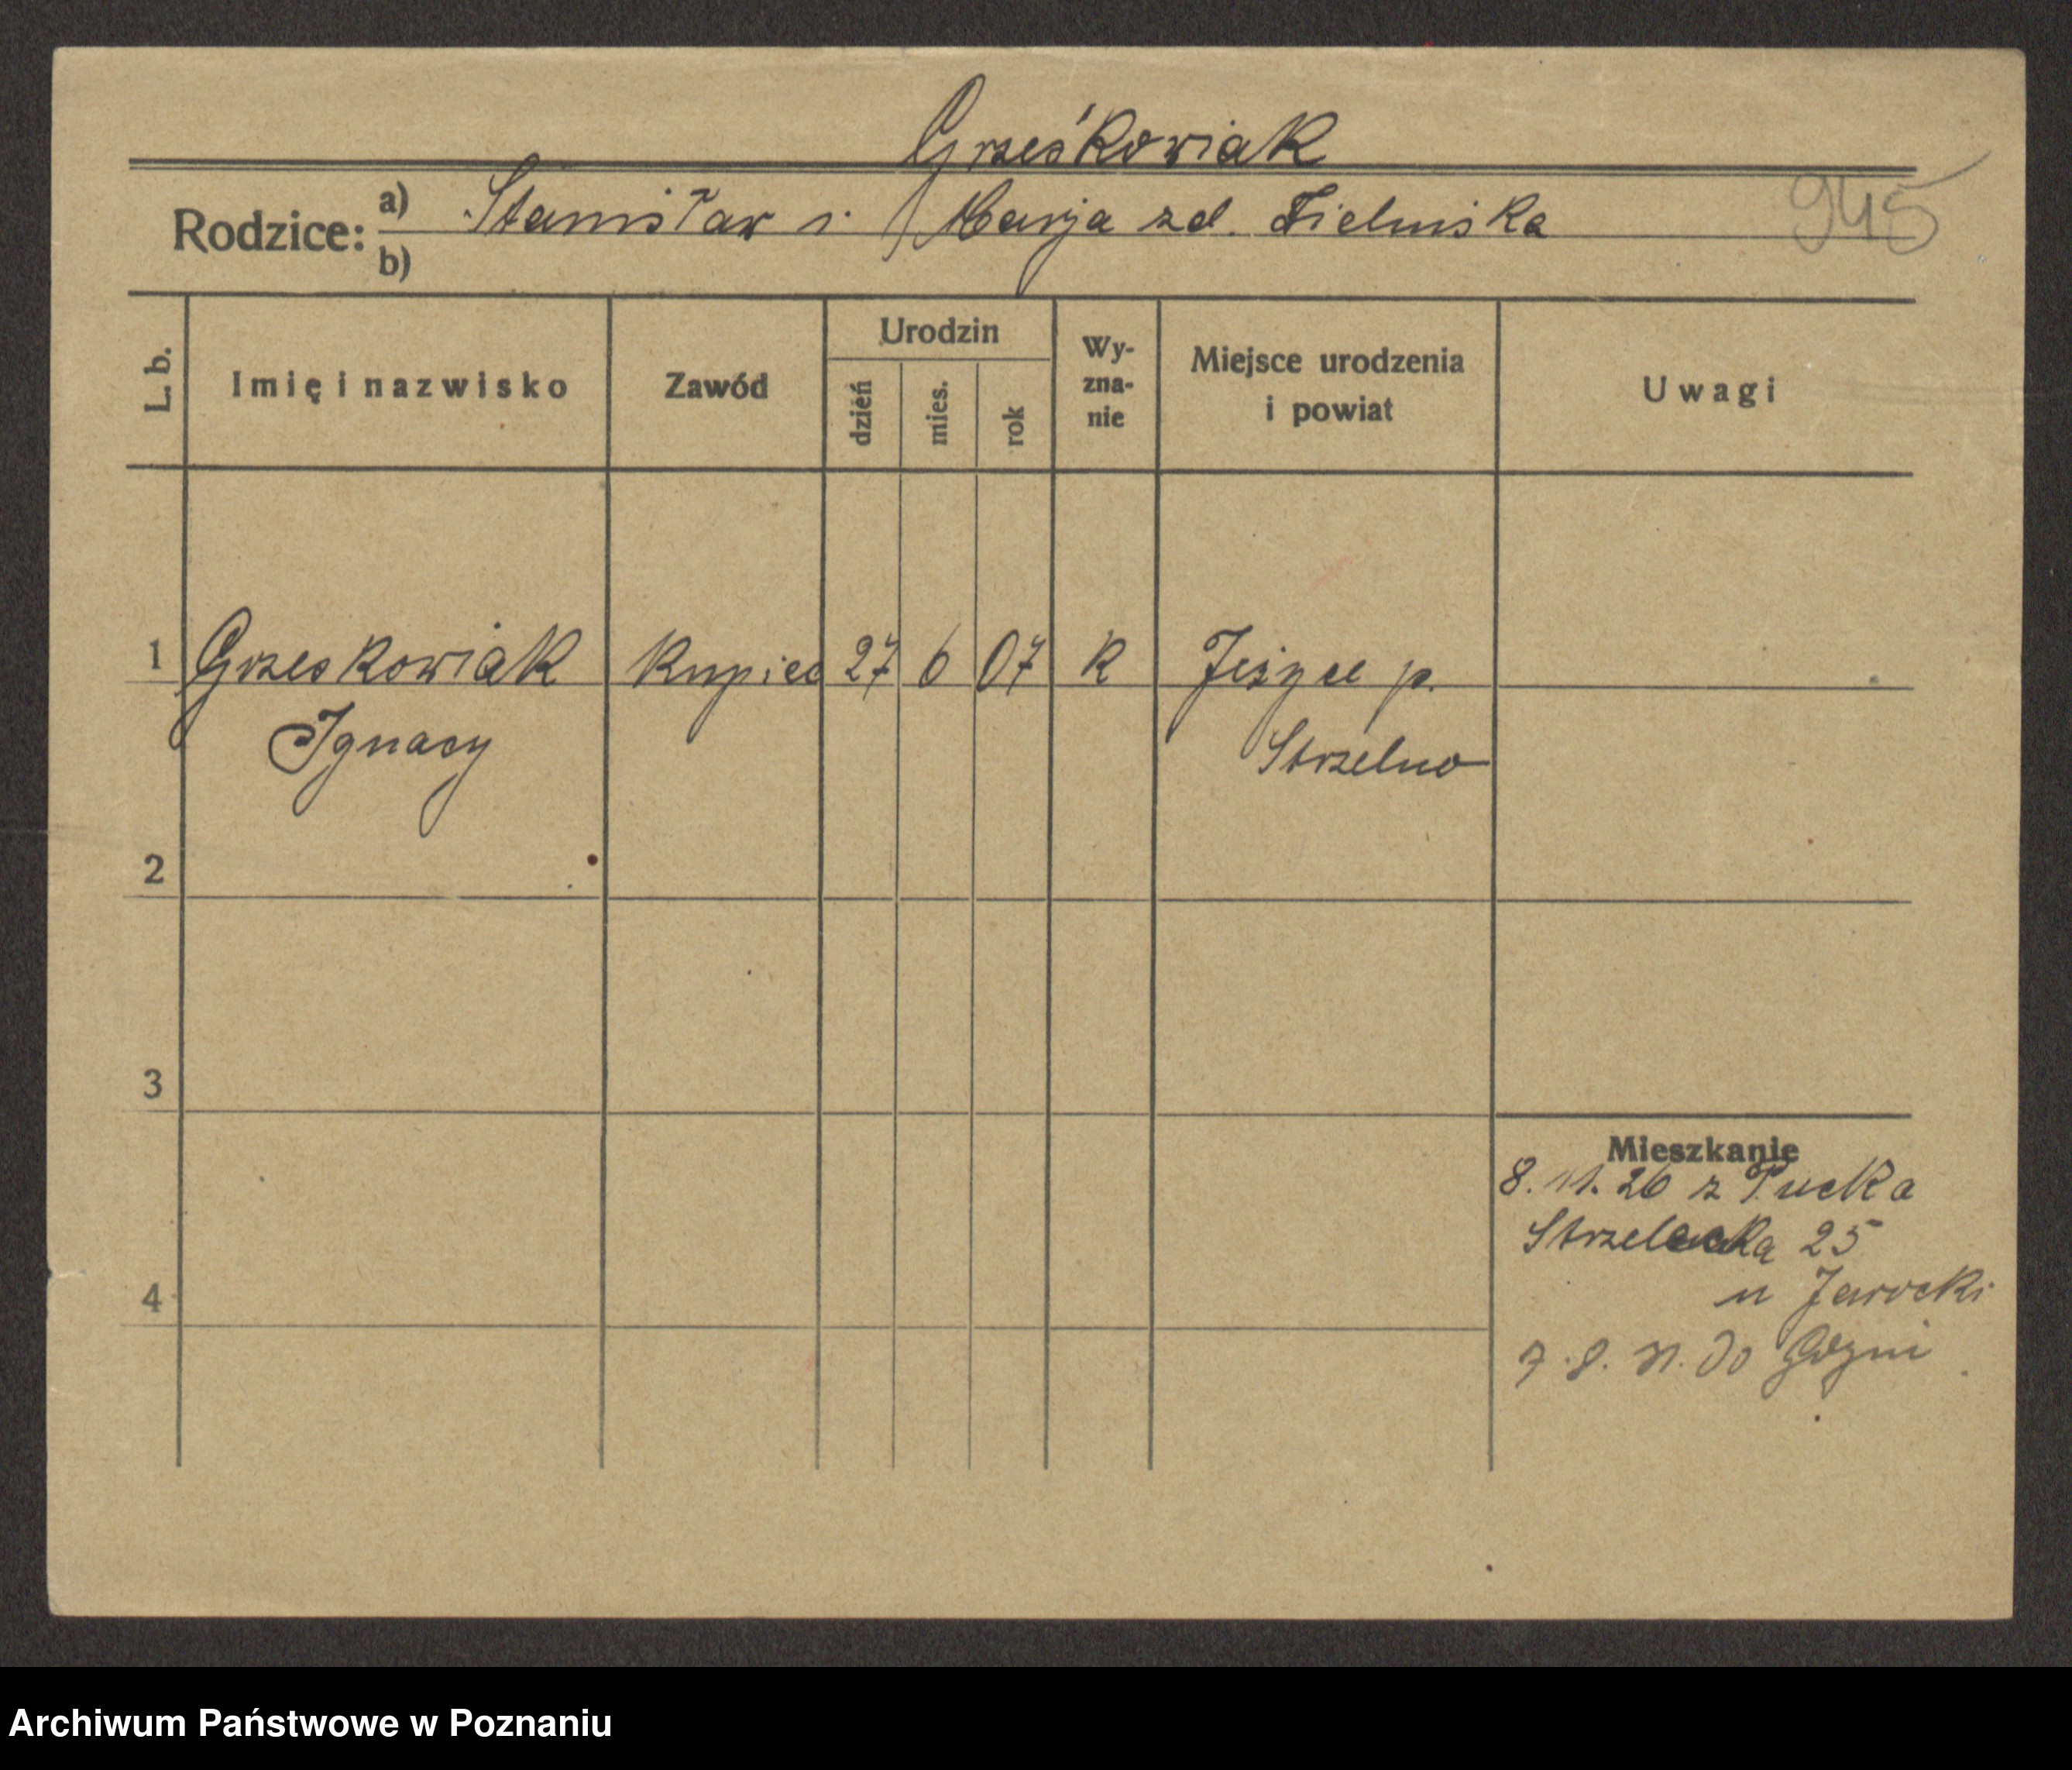 Grześkowiak
Rodzice: a) Stanisław i Marja zd. Zielińska
945
b)
L. b.
Imię i nazwisko
Zawód
Urodzin
dzień
mies.
rok
Wy-
zna-
nie
Miejsce urodzenia
i powiat
Uwagi
1 Grzeskowiak Kupiec 27 6 07 k Jeżyce p.
Ignacy Strzelno
2
3
4
Mieszkanie
8. 11. 26 z Pucka
Strzelecka 25
u Jarocki
7. 8. 31. do Gdyni
Archiwum Państwowe w Poznaniu